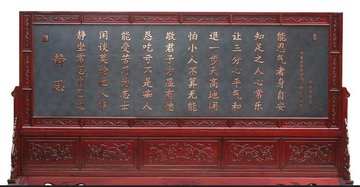 能忍气者身自安
知足之人心常乐
让三分心平气和
退一步天高地阔
怕小人不算无能
敬君子方显有德
愿吃亏不是痴人
能受苦方为志士
闲谈莫论他人非
静坐常思自己过
静思